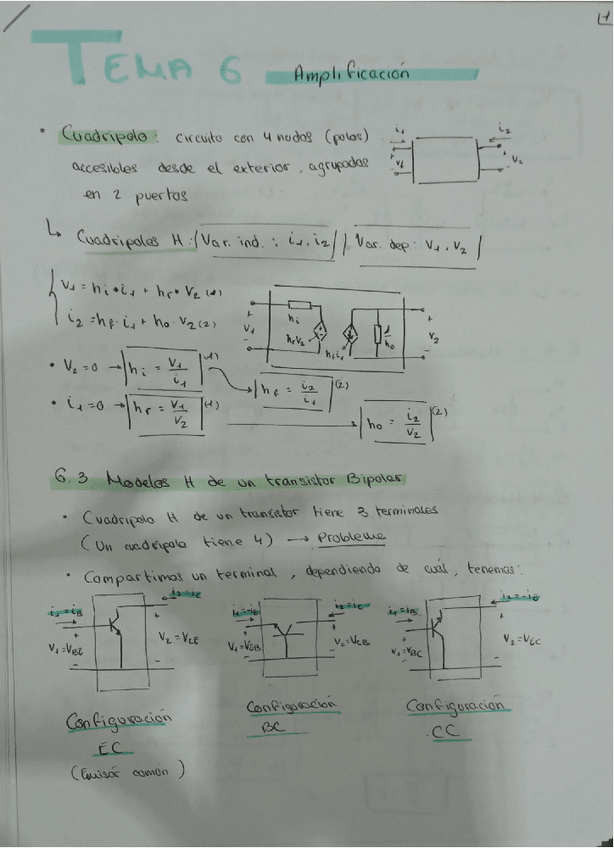 1
TEMA 6 Amplificación
• Cuadripolo: circuito con 4 nodos (polos)
accesibles desde el exterior, agrupados
en 2 puertos
i₁ i₂
V₁ V₂
↳ Cuadripolos H: | Var. ind.: i₁, i₂ | | Var. dep: V₁, V₂ |
V₁ = hᵢ • i₁ + hᵣ • V₂ (1)
i₂ = h_f · i₁ + h₀ V₂ (2)
+ V₁ - hᵢ hᵣV₂ h_f i₁ 1/h₀ + V₂ -
• V₂ = 0 → | hᵢ = V₁/i₁ | (1) | h_f = i₂/i₁ | (2)
• i₁ = 0 → | hᵣ = V₁/V₂ | (1) → | h₀ = i₂/V₂ | (2)
6.3 Modelos H de un transistor Bipolar
• Cuadripolo H de un transistor tiene 3 terminales
(Un cuadripolo tiene 4) → Problema
• Compartimos un terminal, dependiendo de cuál, tenemos:
i₁ = i_B i₂ = i_C
V₁ = V_BE V₂ = V_CE
i₁ = i_E i₂ = i_C
V₁ = V_EB V₂ = V_CB
i₁ = i_B i₂ = i_E
V₁ = V_BC V₂ = V_EC
Configuración
EC
(Emisor común)
Configuración
BC
Configuración
CC